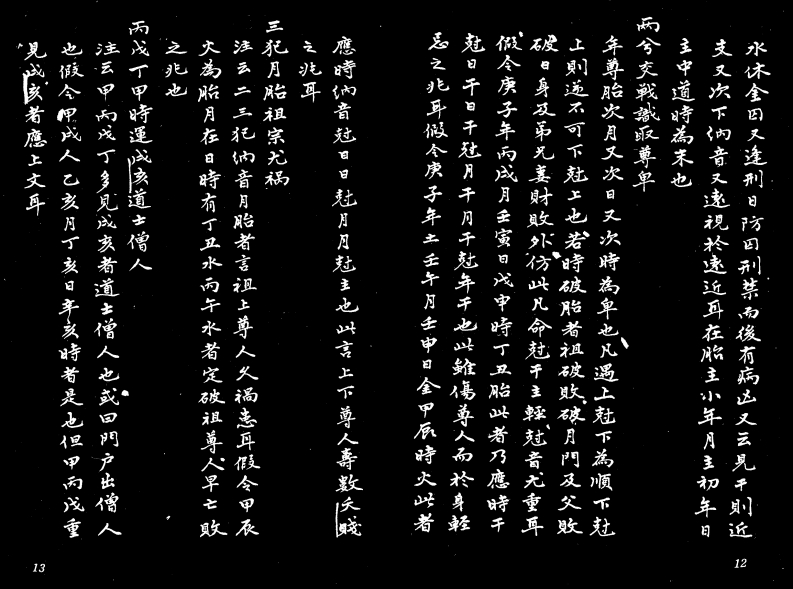 水休金囚又逢刑日防囚刑禁而後有病凶又云見干則近
支又次下納音又遠視於遠近耳在胎主小年月主初年日
主中道時為末也
兩兮交戰識取尊卑
年尊胎次月又次日又次時為卑也凡遇上尅下為順下尅
上則逆不可下尅上也若時破胎者祖破敗破月門及父敗
破日身及弟兄妻財敗外仿此凡命尅干主輕尅音尤重耳
假令庚子年丙戌月壬寅日戊申時丁丑胎此者乃應時干
尅日干日干尅月干月干尅年干也此雖傷尊人而於身輕
忌之兆耳假令庚子年土壬午月壬申日金甲辰時火此者
12
應時納音尅日日尅月月尅主也此言上下尊人壽數夭賤
之兆耳
三犯月胎祖宗尤禍
注云二三犯納音月胎者言祖上尊人久禍患耳假令甲辰
火為胎月在日時有丁丑水丙午水者定破祖尊人早亡敗
之兆也
丙戊丁甲時運戌亥道士僧人
注云甲丙戊丁多見戌亥者道士僧人也或曰門户出僧人
也假令甲戌人乙亥月丁亥日辛亥時者是也但甲丙戊重
見戌亥者應上文耳
13